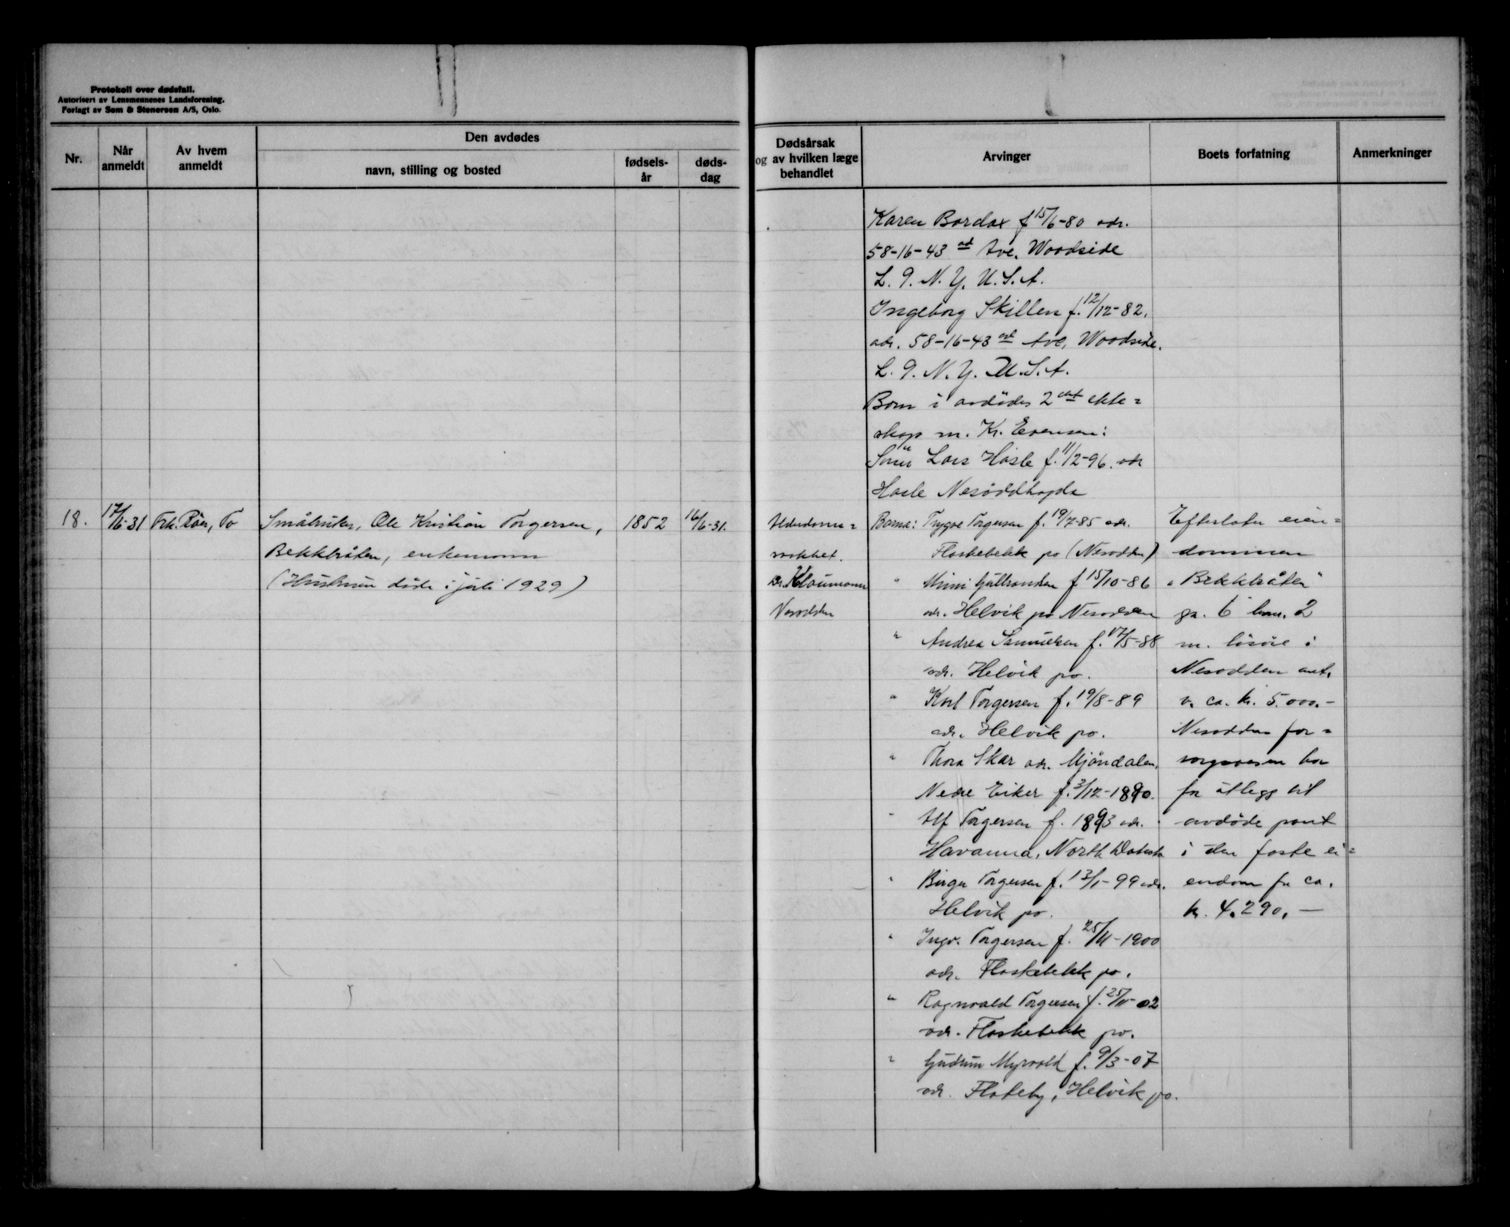 Protokoll over dødsfall.
Autorisert av Lensmennenes Landsforening.
Forlagt av Sem & Stenersen A/S, Oslo.
Nr.
Når anmeldt
Av hvem anmeldt
Den avdødes
navn, stilling og bosted
fødsels-år
døds-dag
Dødsårsak og av hvilken læge behandlet
Arvinger
Boets forfatning
Anmerkninger
Karen Bordox f 15/6-80 adr.
58-16-43 rd Ave. Woodside
L. I. N. Y. U.S.A.
Ingeborg Skillen f. 12/12-82.
adr. 58-16-43 rd Ave. Woodside.
L. I. N. Y. U.S.A.
Barn i avdødes 2 det ekte=
skap m. Kr. Evensen:
Sønn Lars Hasle f. 11/2-96. adr
Hasle Nesoddhøgda
18.
17/6-31
To
Småbruker, Ole Kristian Torgersen,
Bekkbråten, enkemann
(Hustruen døde i juli 1929)
1852
16/6-31.
Alderdoms=
svakhet.
Dr. Klaumann
Nesodden
Barna: Trygve Torgersen f. 19/7-85 adr.
Flaskebekk po (Nesodden)
" Minni Gulbrandsen f 15/10-86
adr. Helvik po Nesodden
" Andrea Samuelsen f. 17/5-88
adr. Helvik po.
" Karl Torgersen f. 19/8-89
adr. Helvik po.
" Thora Skar adr. Mjöndalen,
Nedre Eiker f. 3/12-1890.
" Alf Torgersen f. 1893 adr.
Havanna, North Dakota
" Birger Torgersen f. 13/1-99 adr.
Helvik po.
" Ingv. Torgersen f. 25/11-1900
adr. Flaskebekk po.
" Ragnvald Torgersen f. 25/11-02
adr. Flaskebekk po.
" Gudrun Myrvold f. 9/3-07
adr. Flateby, Helvik po.
Efterlater eien=
dommen
"Bekkbråten"
gr. 6 brn. 2
m. løsøre i
Nesodden ant.
v. ca. kr. 5.000.-
Nesodden for=
sorgsvesen har
for utlegg til
avdøde pant
i den faste ei=
endom for ca.
kr. 4.290.—